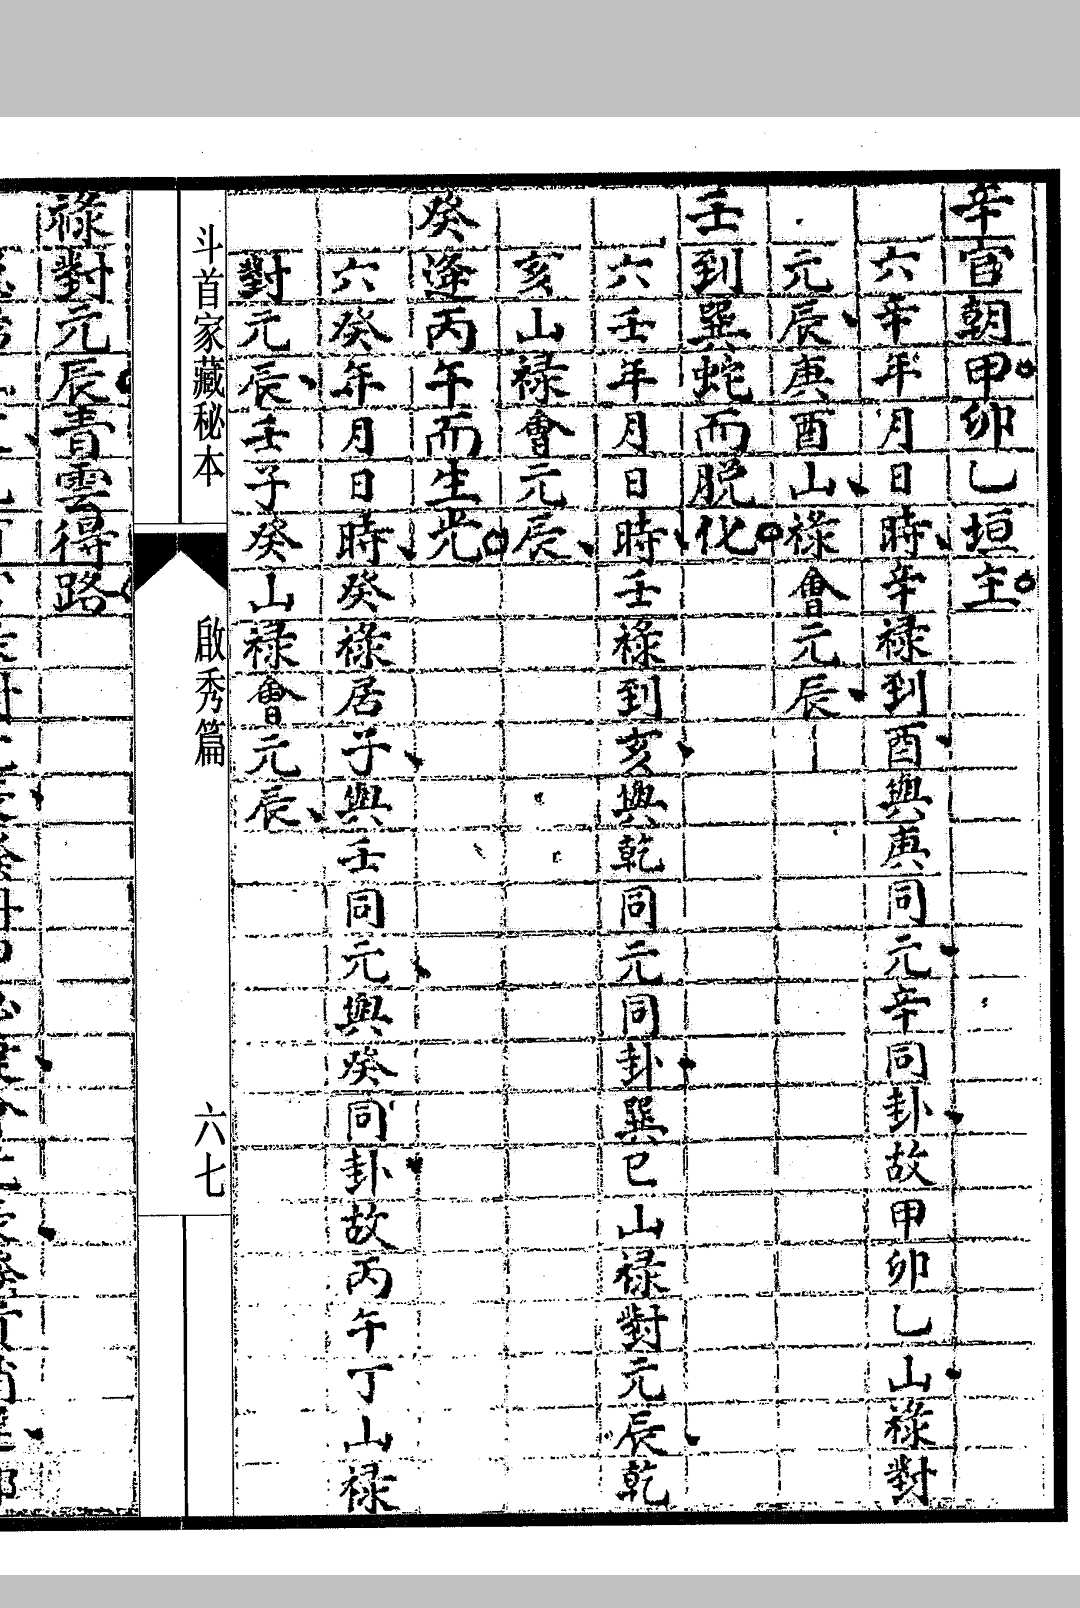 辛官朝甲卯乙垣主
六辛年月日時辛祿到酉與庚同元辛同卦故甲卯乙山祿對
元辰庚酉山祿會元辰
壬到巽蛇而脱化
六壬年月日時壬祿到亥與乾同元同卦巽巳山祿對元辰乾
亥山祿會元辰
癸逢丙午而生光
六癸年月日時癸祿居子與壬同元與癸同卦故丙午丁山祿
對元辰壬子癸山祿會元辰
斗首家藏秘本
啟秀篇
六七
祿對元辰青雲得路